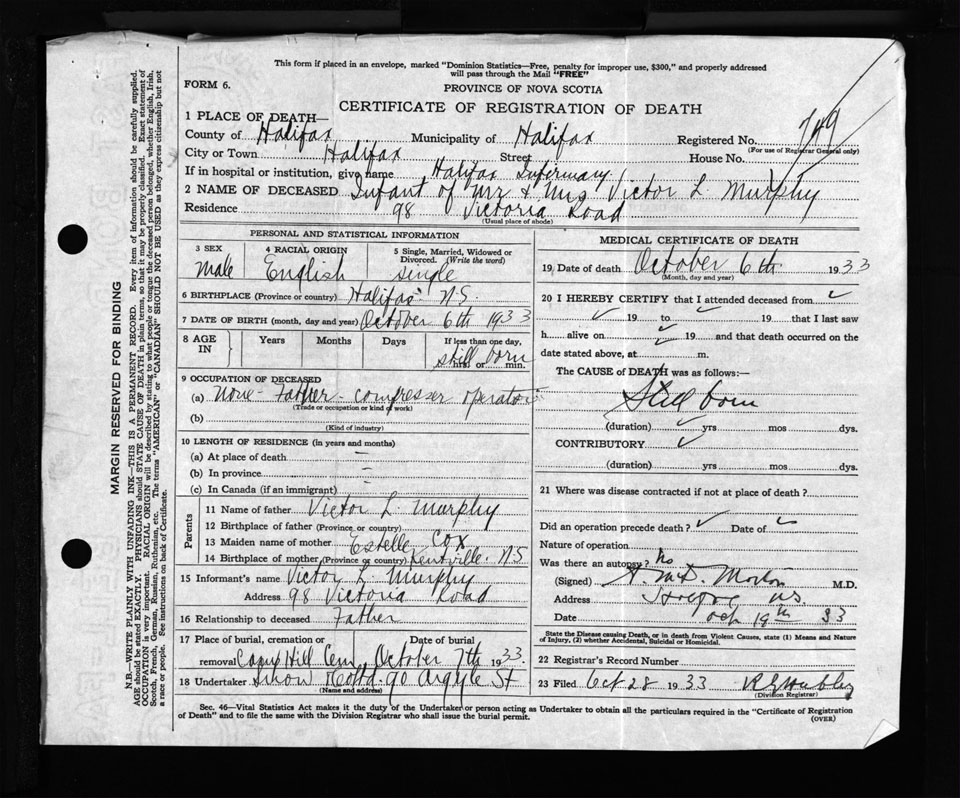 This form if placed in an envelope, marked "Dominion Statistics—Free, penalty for improper use, $300," and properly addressed
will pass through the Mail "FREE"
FORM 6.
PROVINCE OF NOVA SCOTIA
CERTIFICATE OF REGISTRATION OF DEATH
1 PLACE OF DEATH—
County of Halifax Municipality of Halifax Registered No. 749
(For use of Registrar General only)
City or Town Halifax Street House No.
If in hospital or institution, give name Halifax Infirmary
2 NAME OF DECEASED Infant of Mr & Mrs Victor L. Murphy
Residence 98 Victoria Road
(Usual place of abode)
PERSONAL AND STATISTICAL INFORMATION
3 SEX 4 RACIAL ORIGIN 5 Single, Married, Widowed or Divorced. (Write the word)
Male English single
6 BIRTHPLACE (Province or country) Halifax N.S.
7 DATE OF BIRTH (month, day and year) October 6th 1933
8 AGE IN Years Months Days If less than one day,
still born
hrs. or min.
9 OCCUPATION OF DECEASED
(a) None - Father - compresser operator
(Trade or occupation or kind of work)
(b)
(Kind of industry)
10 LENGTH OF RESIDENCE (in years and months)
(a) At place of death —
(b) In province —
(c) In Canada (if an immigrant) —
Parents
11 Name of father Victor L. Murphy
12 Birthplace of father (Province or country)
13 Maiden name of mother Estelle Cox
14 Birthplace of mother (Province or country) Kentville. N.S
15 Informant's name Victor L. Murphy
Address 98 Victoria Road
16 Relationship to deceased Father
17 Place of burial, cremation or Date of burial
removal Camp Hill Cem October 7th 1933
18 Undertaker Snow & Co Ltd. 90 Argyle St
(Name and address)
MEDICAL CERTIFICATE OF DEATH
19 Date of death October 6th 1933
(Month, day and year)
20 I HEREBY CERTIFY that I attended deceased from ✓
✓ 19 to ✓ 19 that I last saw
h alive on ✓ 19 and that death occurred on the
date stated above, at ✓ m.
The CAUSE of DEATH was as follows:—
Still born
(duration) ✓ yrs mos dys.
CONTRIBUTORY ✓
(duration) yrs mos dys.
21 Where was disease contracted if not at place of death?
Did an operation precede death? ✓ Date of ✓
Nature of operation
Was there an autopsy? No
(Signed) A. McD. Morton M.D.
Address N.S.
Date Oct 19th 33
State the Disease causing Death, or in death from Violent Causes, state (1) Means and Nature
of Injury, (2) whether Accidental, Suicidal or Homicidal.
22 Registrar's Record Number
23 Filed Oct 28 1933
(Division Registrar)
Sec. 46—Vital Statistics Act makes it the duty of the Undertaker or person acting as Undertaker to obtain all the particulars required in the "Certificate of Registration
of Death" and to file the same with the Division Registrar who shall issue the burial permit.
(OVER)
MARGIN RESERVED FOR BINDING
N.B.—WRITE PLAINLY WITH UNFADING INK—THIS IS A PERMANENT RECORD. Every item of information should be carefully supplied.
AGE should be stated EXACTLY. PHYSICIANS should STATE CAUSE OF DEATH in plain terms, so that it may be properly classified. Exact statement of
OCCUPATION is very important. RACIAL ORIGIN will be described by stating to what people or tongue the deceased person belonged, whether English, Irish,
Scotch, French, German, Russian, Ruthenian, etc. The terms "AMERICAN" or "CANADIAN" SHOULD NOT BE USED as they express citizenship but not
a race or people. See instructions on back of Certificate.